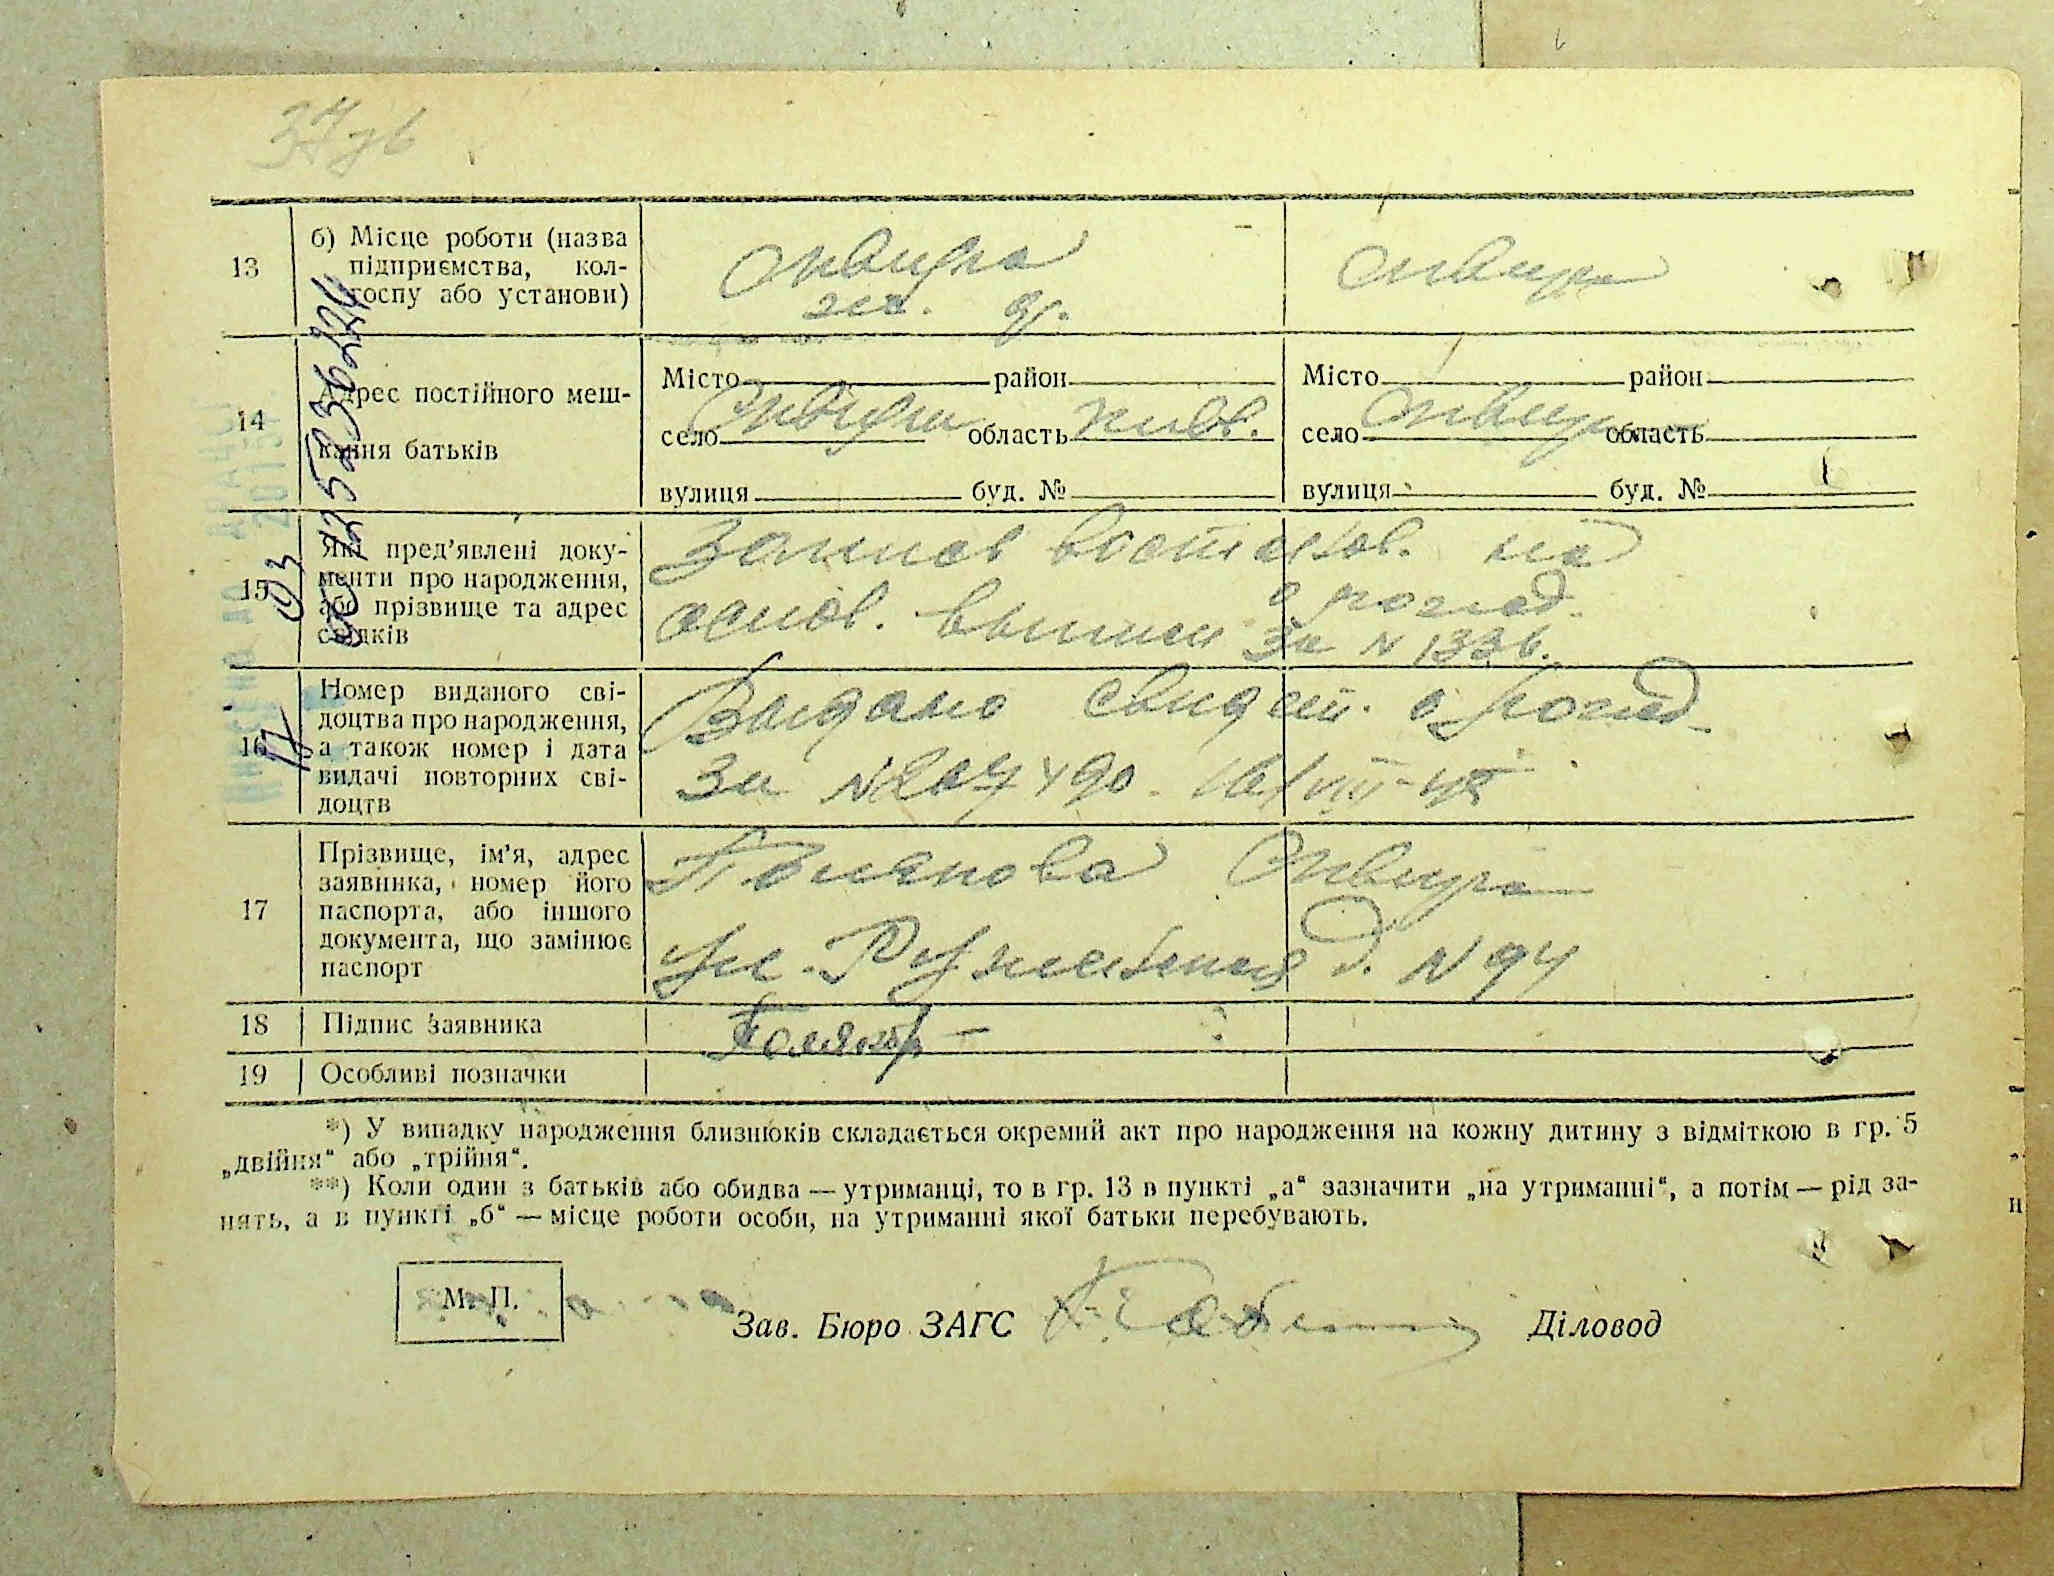 37зв
13
б) Місце роботи (назва
підприємства, кол-
госпу або установи)
Сквира
жел. д.
Сквира
14
Адрес постійного меш-
кання батьків
Місто район
село Сквира область Київ.
вулиця буд. №
Місто район
село Сквира область
вулиця буд. №
15
Які пред'явлені доку-
менти про народження,
або прізвище та адрес
свідків
Запись востанов. на
основ. выписи о рожд.
за N 1336.
16
Номер виданого сві-
доцтва про народження,
а також номер і дата
видачі повторних сві-
доцтв
Выдано свидет. о рожд.
за N
17
Прізвище, ім'я, адрес
заявника, номер його
паспорта, або іншого
документа, що замінює
паспорт
Полякова Сквира
ул. д. N 94
18
Підпис заявника
19
Особливі позначки
*) У випадку народження близнюків складається окремий акт про народження на кожну дитину з відміткою в гр. 5
„двійня“ або „трійня“.
**) Коли один з батьків або обидва — утриманці, то в гр. 13 в пункті „а“ зазначити „на утриманні“, а потім — рід за-
нять, а в пункті „б“ — місце роботи особи, на утриманні якої батьки перебувають.
М. П.
Зав. Бюро ЗАГС
Діловод